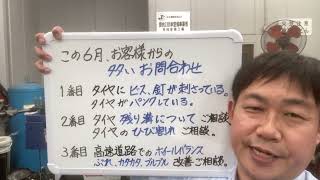 この6月、お客様からの
多いお問合わせ
1番目 タイヤにビス、釘が刺さっている。
タイヤがパンクしている。
2番目 タイヤ残り溝についてご相談。
タイヤのひび割れご相談。
3番目 高速道路でのホイールバランス
ぶれ、カタカタ、ブルブル 改善ご相談。